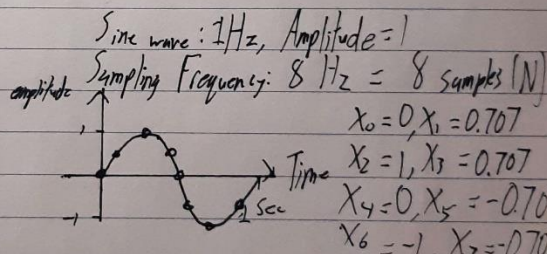 Sine wave: 1Hz, Amplitude=1
Sampling Frequency: 8 Hz = 8 samples (N)
amplitude
X₀ = 0, X₁ = 0.707
1
X₂ = 1, X₃ = 0.707
Time
X₄ = 0, X₅ = -0.70
1 sec
-1
X₆ = -1 X₇ = -0.70